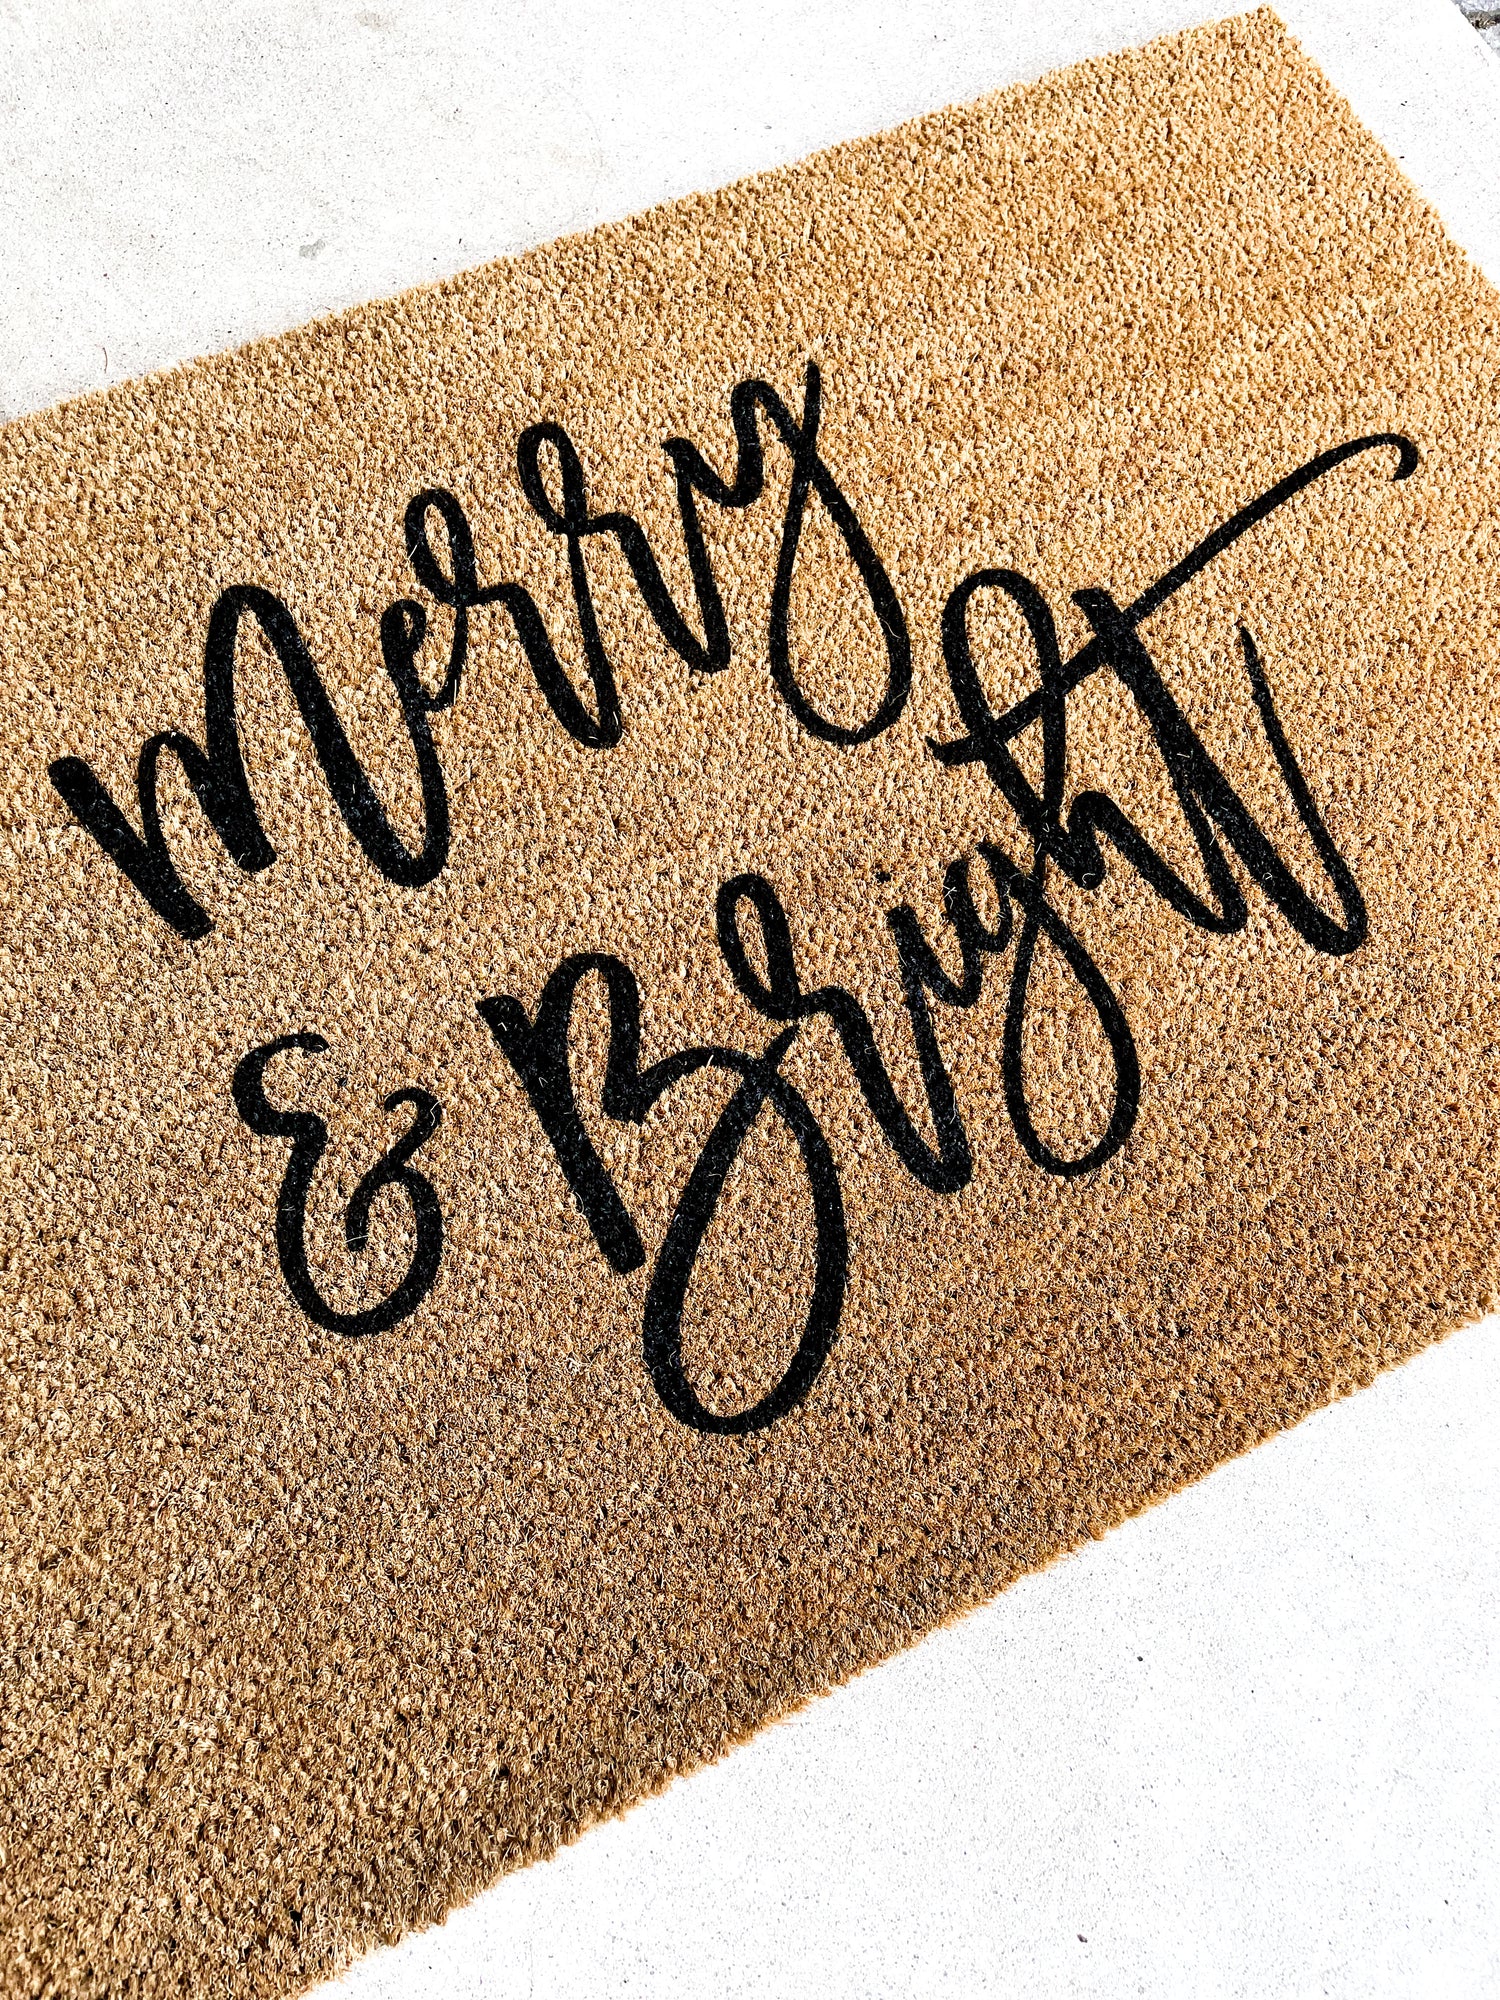 merry
& Bright